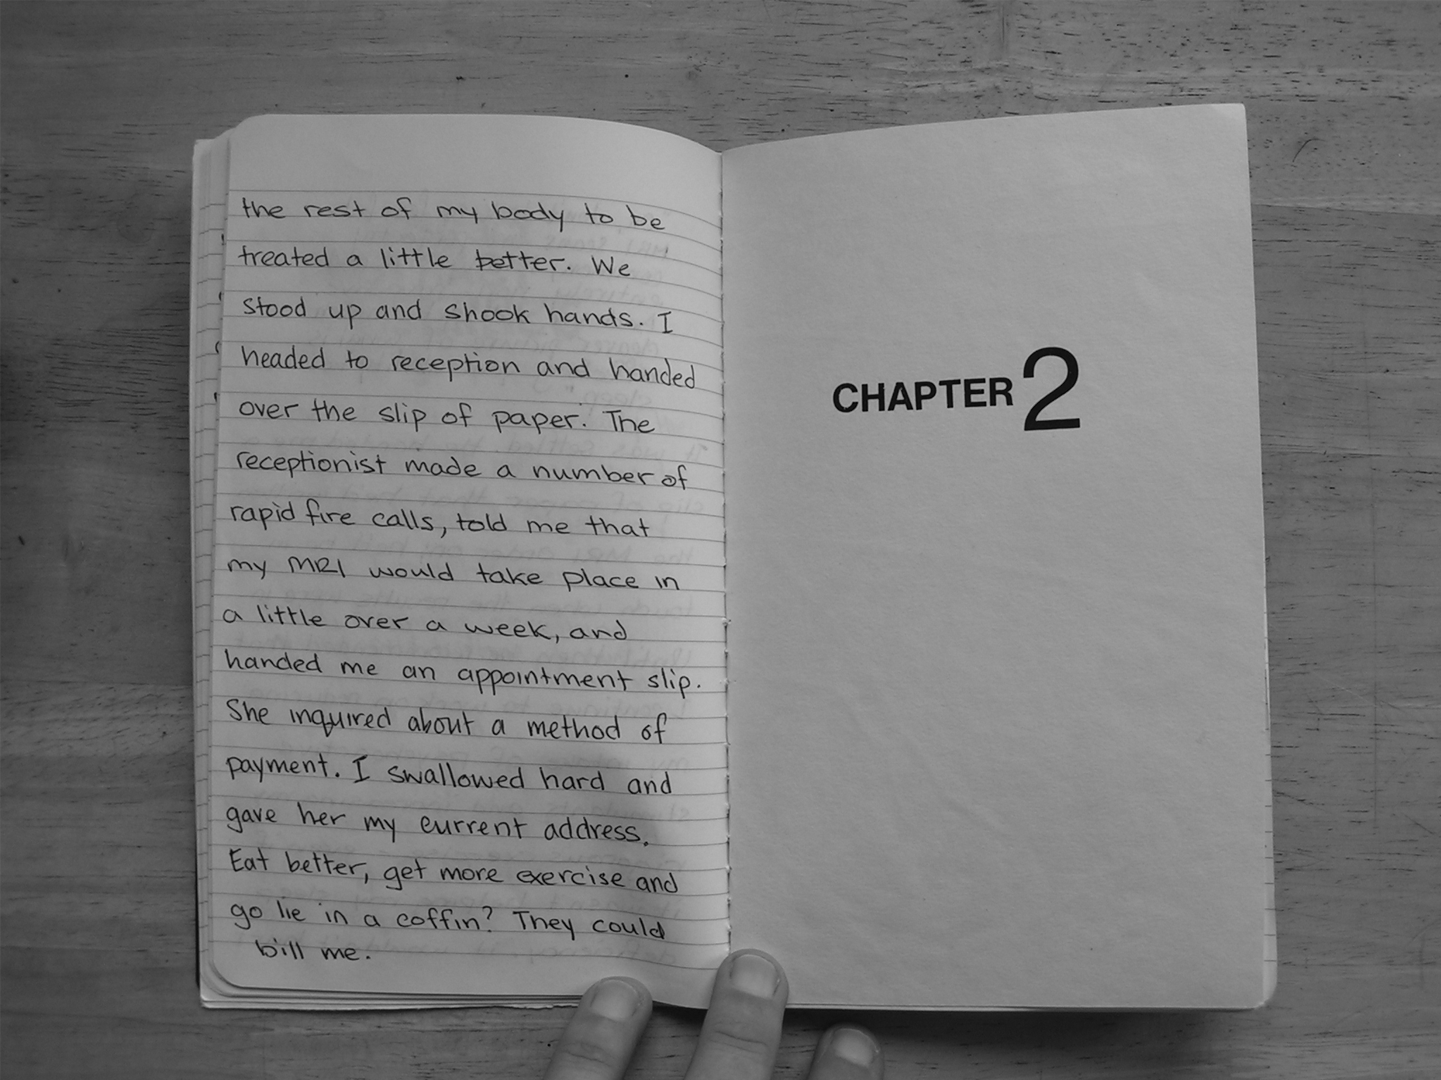 the rest of my body to be
treated a little better. We
stood up and shook hands. I
headed to reception and handed
over the slip of paper. The
receptionist made a number of
rapid fire calls, told me that
my MRI would take place in
a little over a week, and
handed me an appointment slip.
She inquired about a method of
payment. I swallowed hard and
gave her my current address.
Eat better, get more exercise and
go lie in a coffin? They could
bill me.
CHAPTER 2